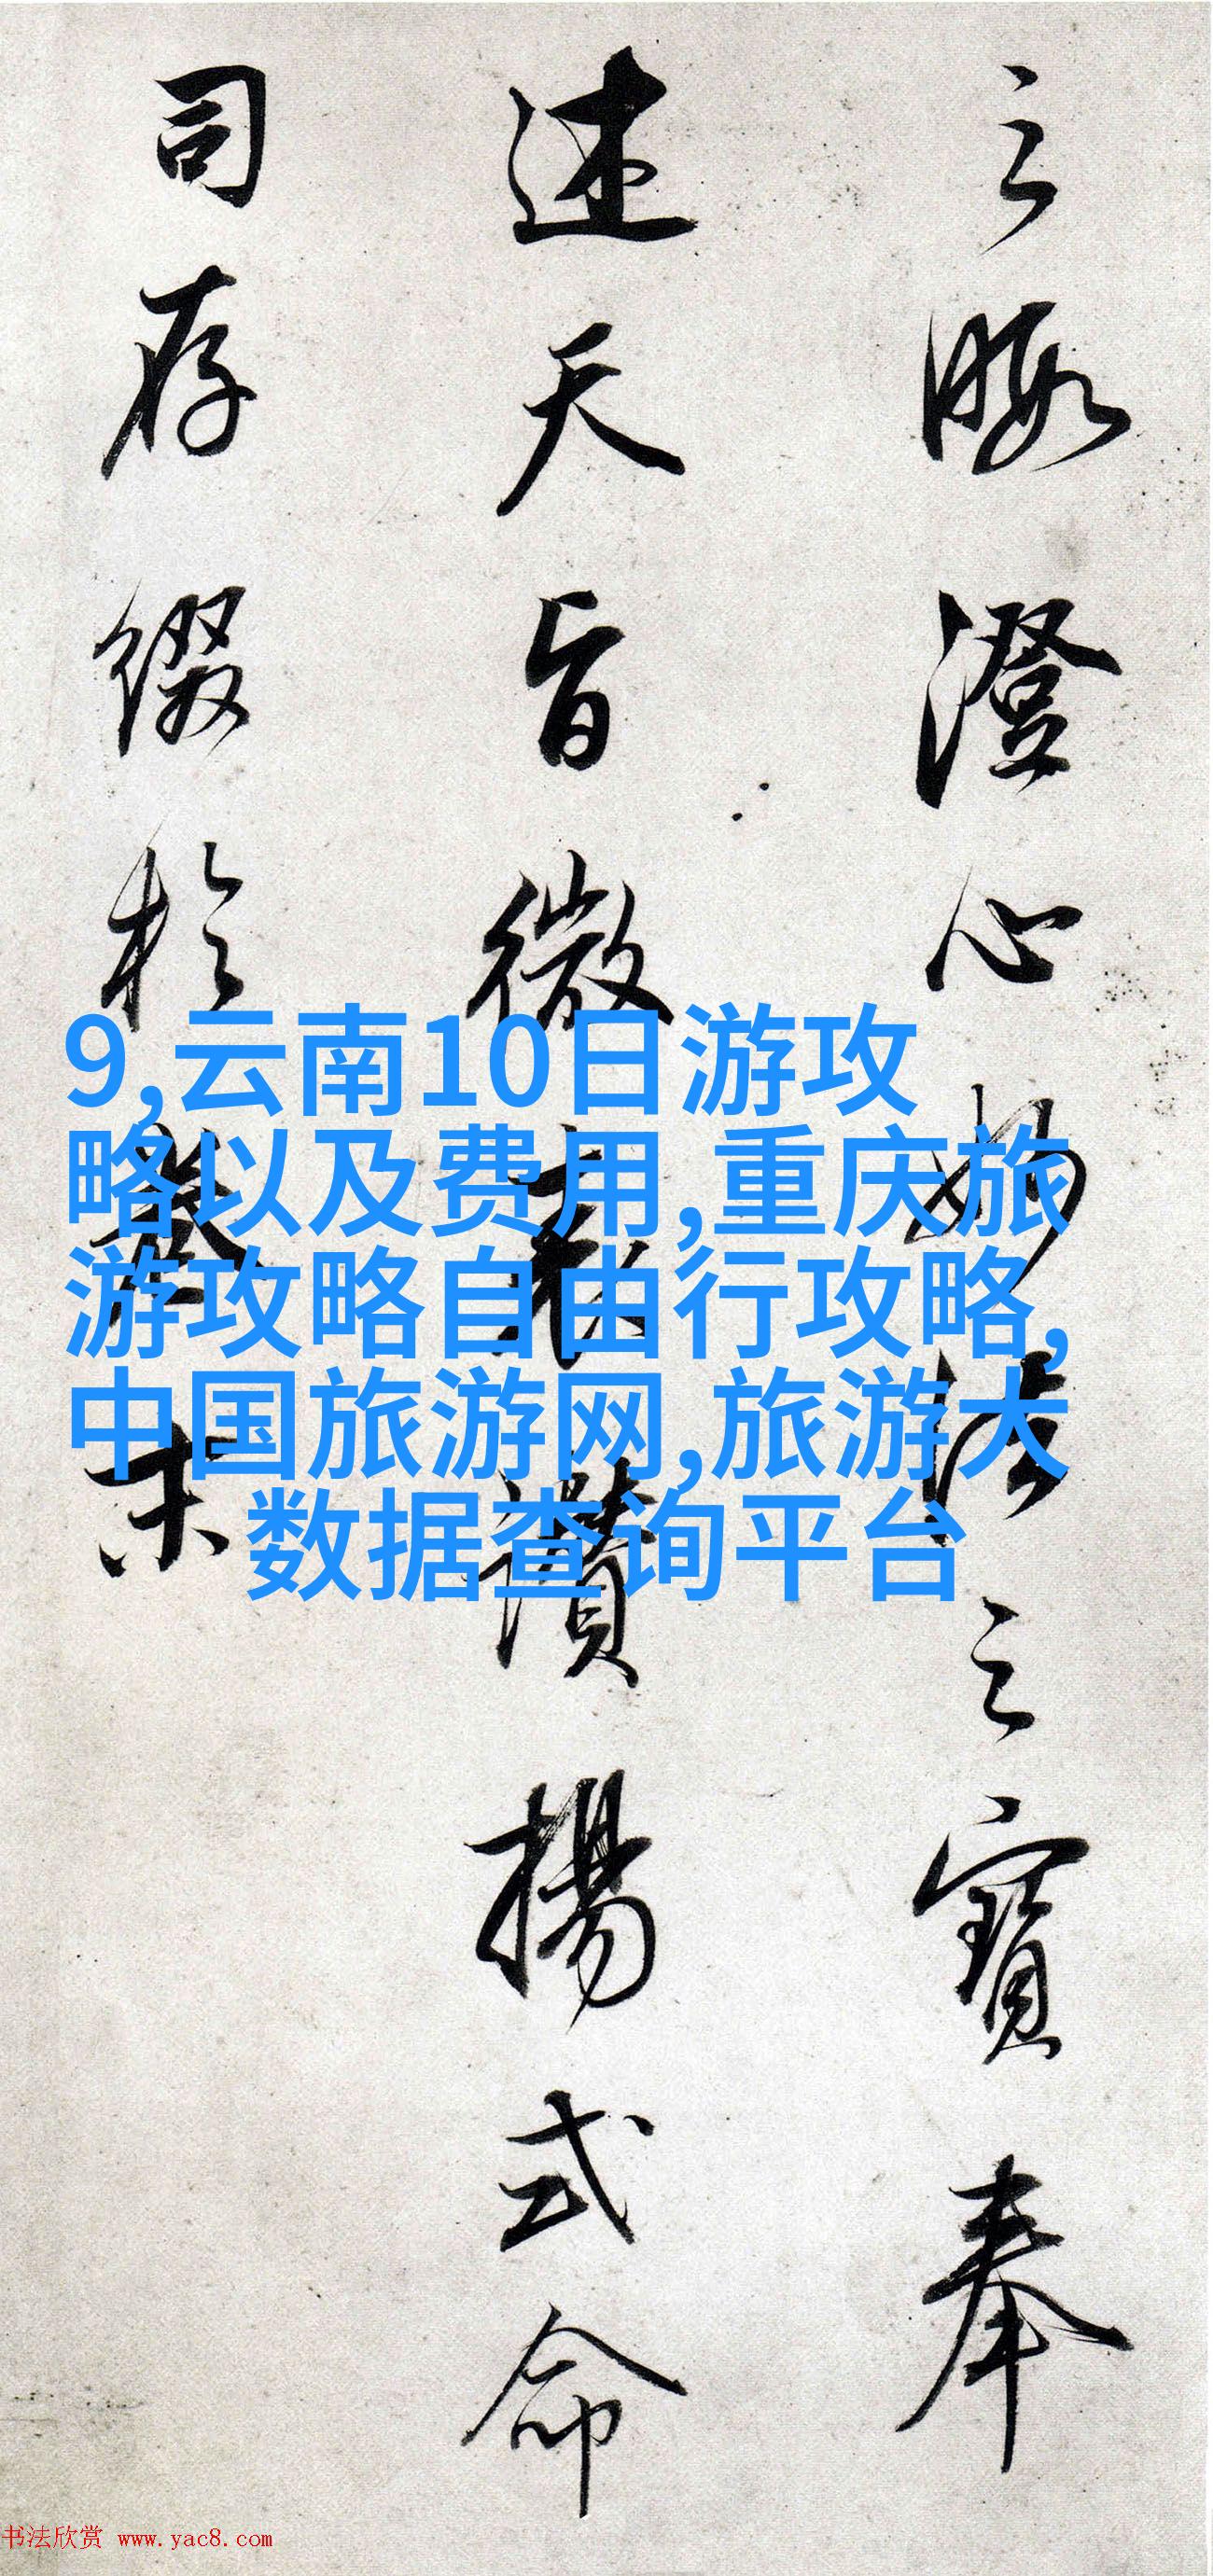 之暇澄心妙法之寶奉
述天旨微表讚揚式命
司存綴於卷末
9,云南10日游攻
略以及费用,重庆旅
游攻略自由行攻略,
中国旅游网,旅游大
数据查询平台
书法欣赏 www.yac8.com